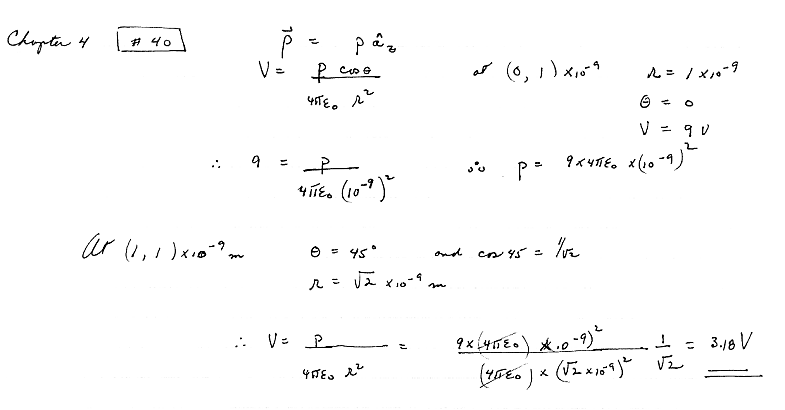 Chapter 4 # 40 p⃗ = p â_z
V = p cos θ / 4πε₀ r² at (0, 1) ×10⁻⁹ r = 1 ×10⁻⁹
θ = 0
V = 9 V
∴ 9 = p / 4πε₀ (10⁻⁹)² ∴ p = 9×4πε₀ ×(10⁻⁹)²
At (1, 1) ×10⁻⁹ m θ = 45° and cos 45 = 1/√2
r = √2 ×10⁻⁹ m
∴ V = p / 4πε₀ r² = 9×(4πε₀) ×10⁻⁹)² / (4πε₀) × (√2 ×10⁻⁹)² 1/√2 = 3.18 V